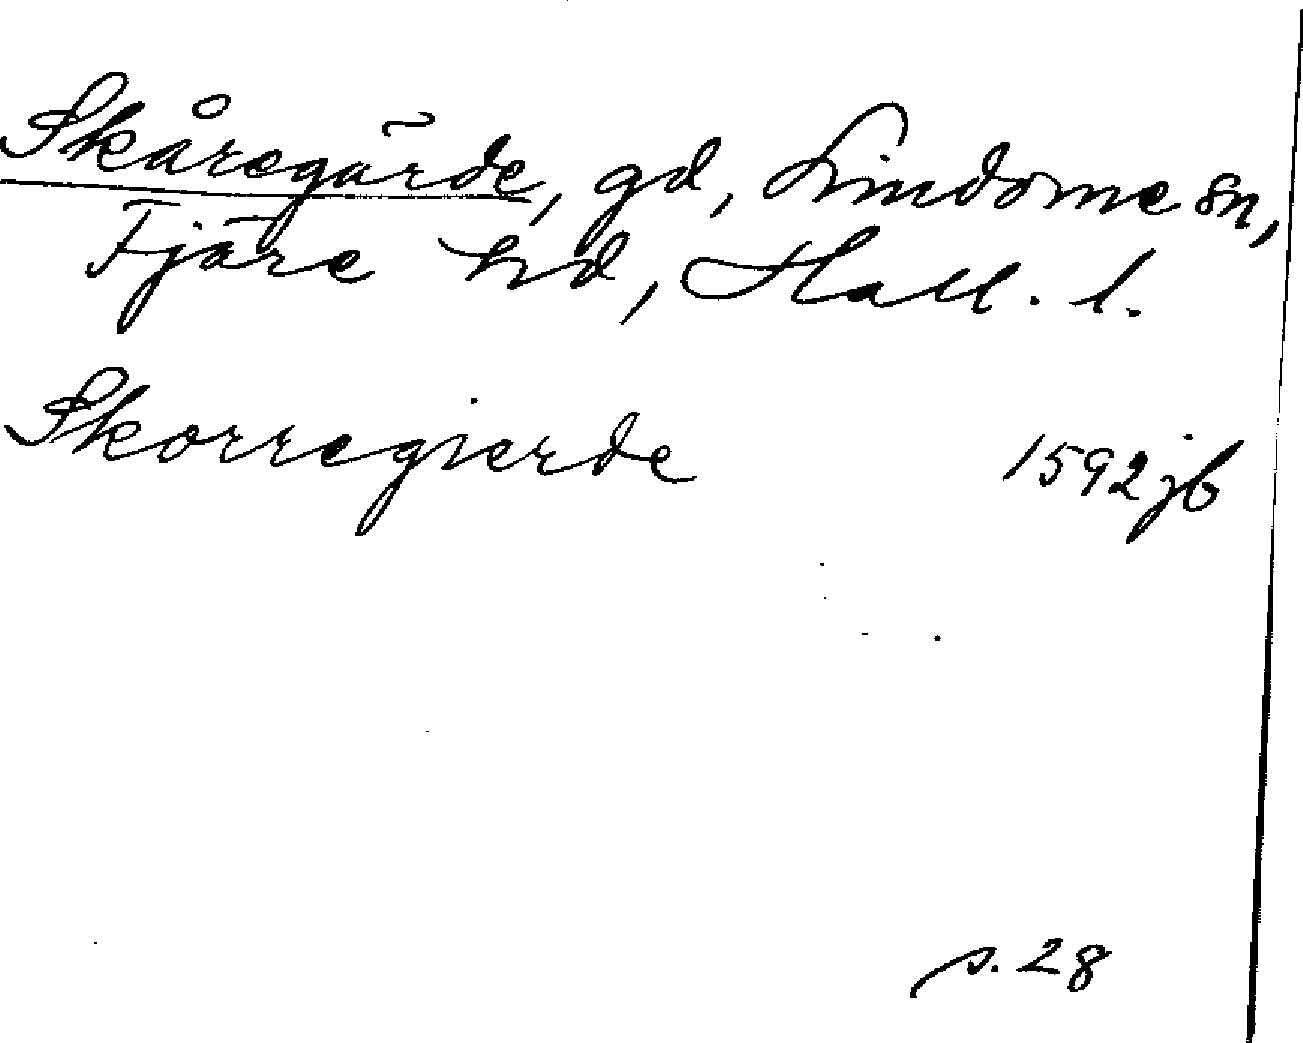 Skåregärde, gd, Lindome sn,
Fjäre hd, Hall. l.
Skorregierde 1592 jb
s. 28